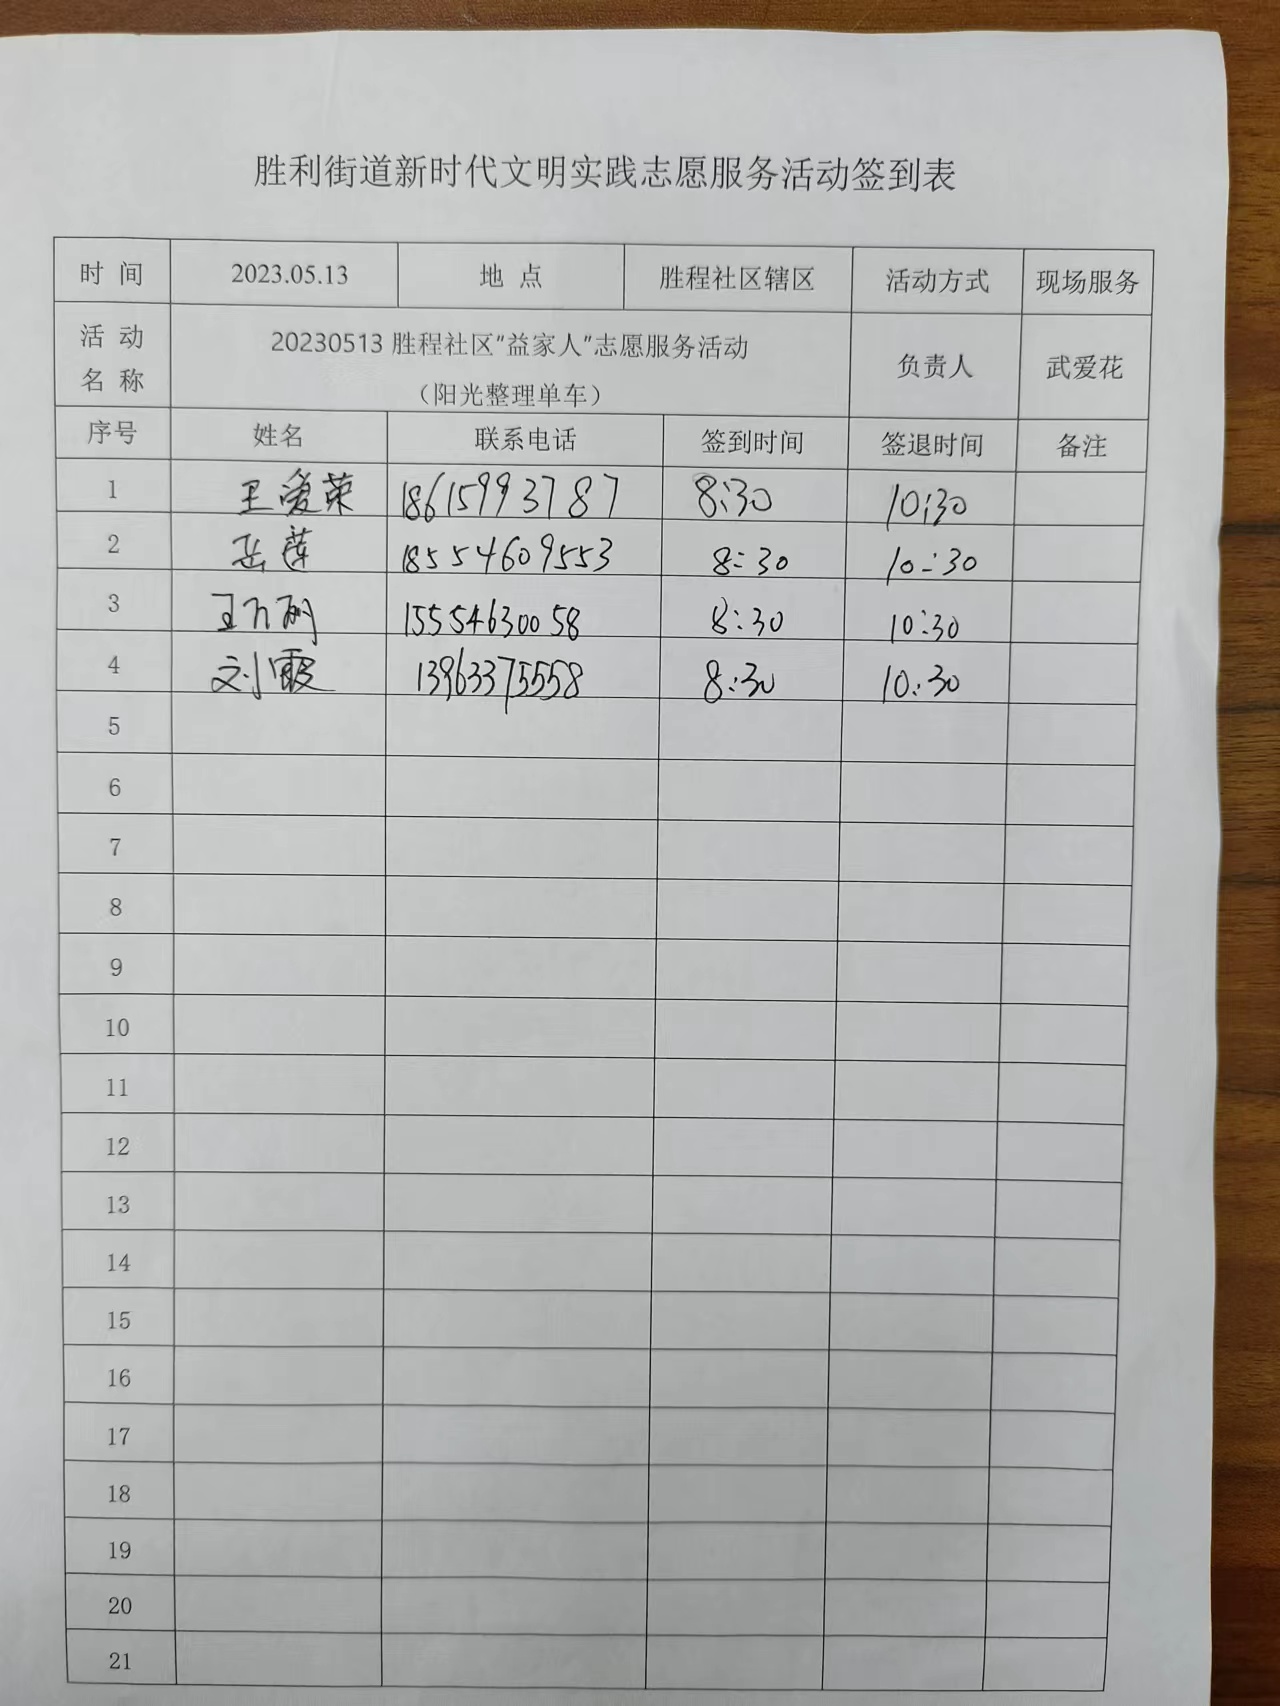 胜利街道新时代文明实践志愿服务活动签到表
时 间 2023.05.13 地 点 胜程社区辖区 活动方式 现场服务
活 动 名 称 20230513 胜程社区“益家人”志愿服务活动 负责人 武爱花
（阳光整理单车）
序号 姓名 联系电话 签到时间 签退时间 备注
1 王爱荣 18615993787 8:30 10:30
2 岳莲 18554609553 8:30 10:30
3 王 丽 15554630058 8:30 10:30
4 刘霞 13963375558 8:30 10:30
5
6
7
8
9
10
11
12
13
14
15
16
17
18
19
20
21